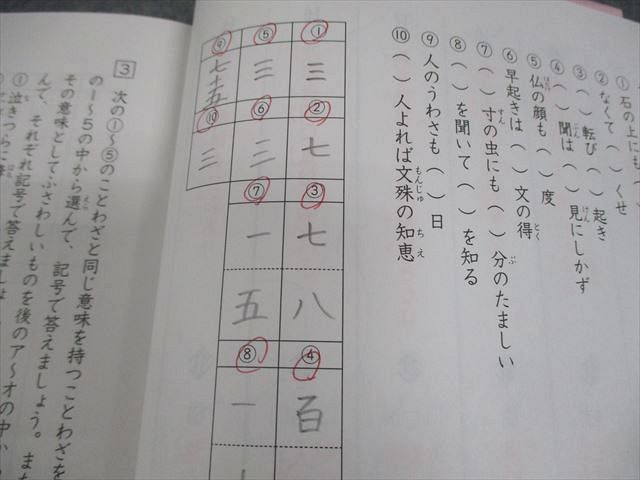 ① 石の上にも（
② なくて（　）くせ
③ （　）転び（　）起き
④ （　）聞は（　）見にしかず
⑤ 仏の顔も（　）度
⑥ 早起きは（　）文の得
⑦ （　）寸の虫にも（　）分のたましい
⑧ （　）を聞いて（　）を知る
⑨ 人のうわさも（　）日
⑩ （　）人よれば文殊の知恵
① 三
② 七
③ 七 八
④ 百
⑤ 三
⑥ 三
⑦ 一 五
⑧ 一
⑨ 七十五
⑩ 三
3 次の①～⑤のことわざと同じ意味を持つことわざを
の1～5の中から選んで、記号で答えましょう。また
その意味としてふさわしいものを後のア～オの中か
んで、それぞれ記号で答えましょ
① 泣きつらに